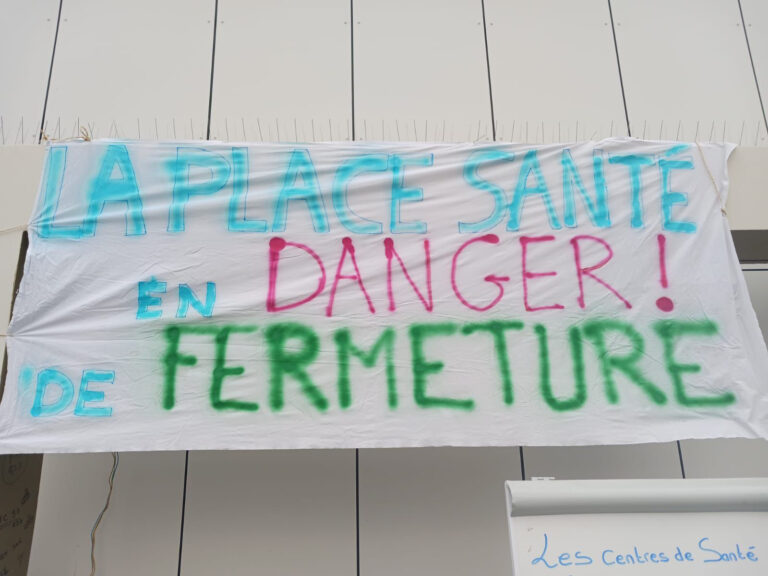 LA PLACE SANTÉ
EN DANGER !
DE FERMETURE
Les Centres de Santé